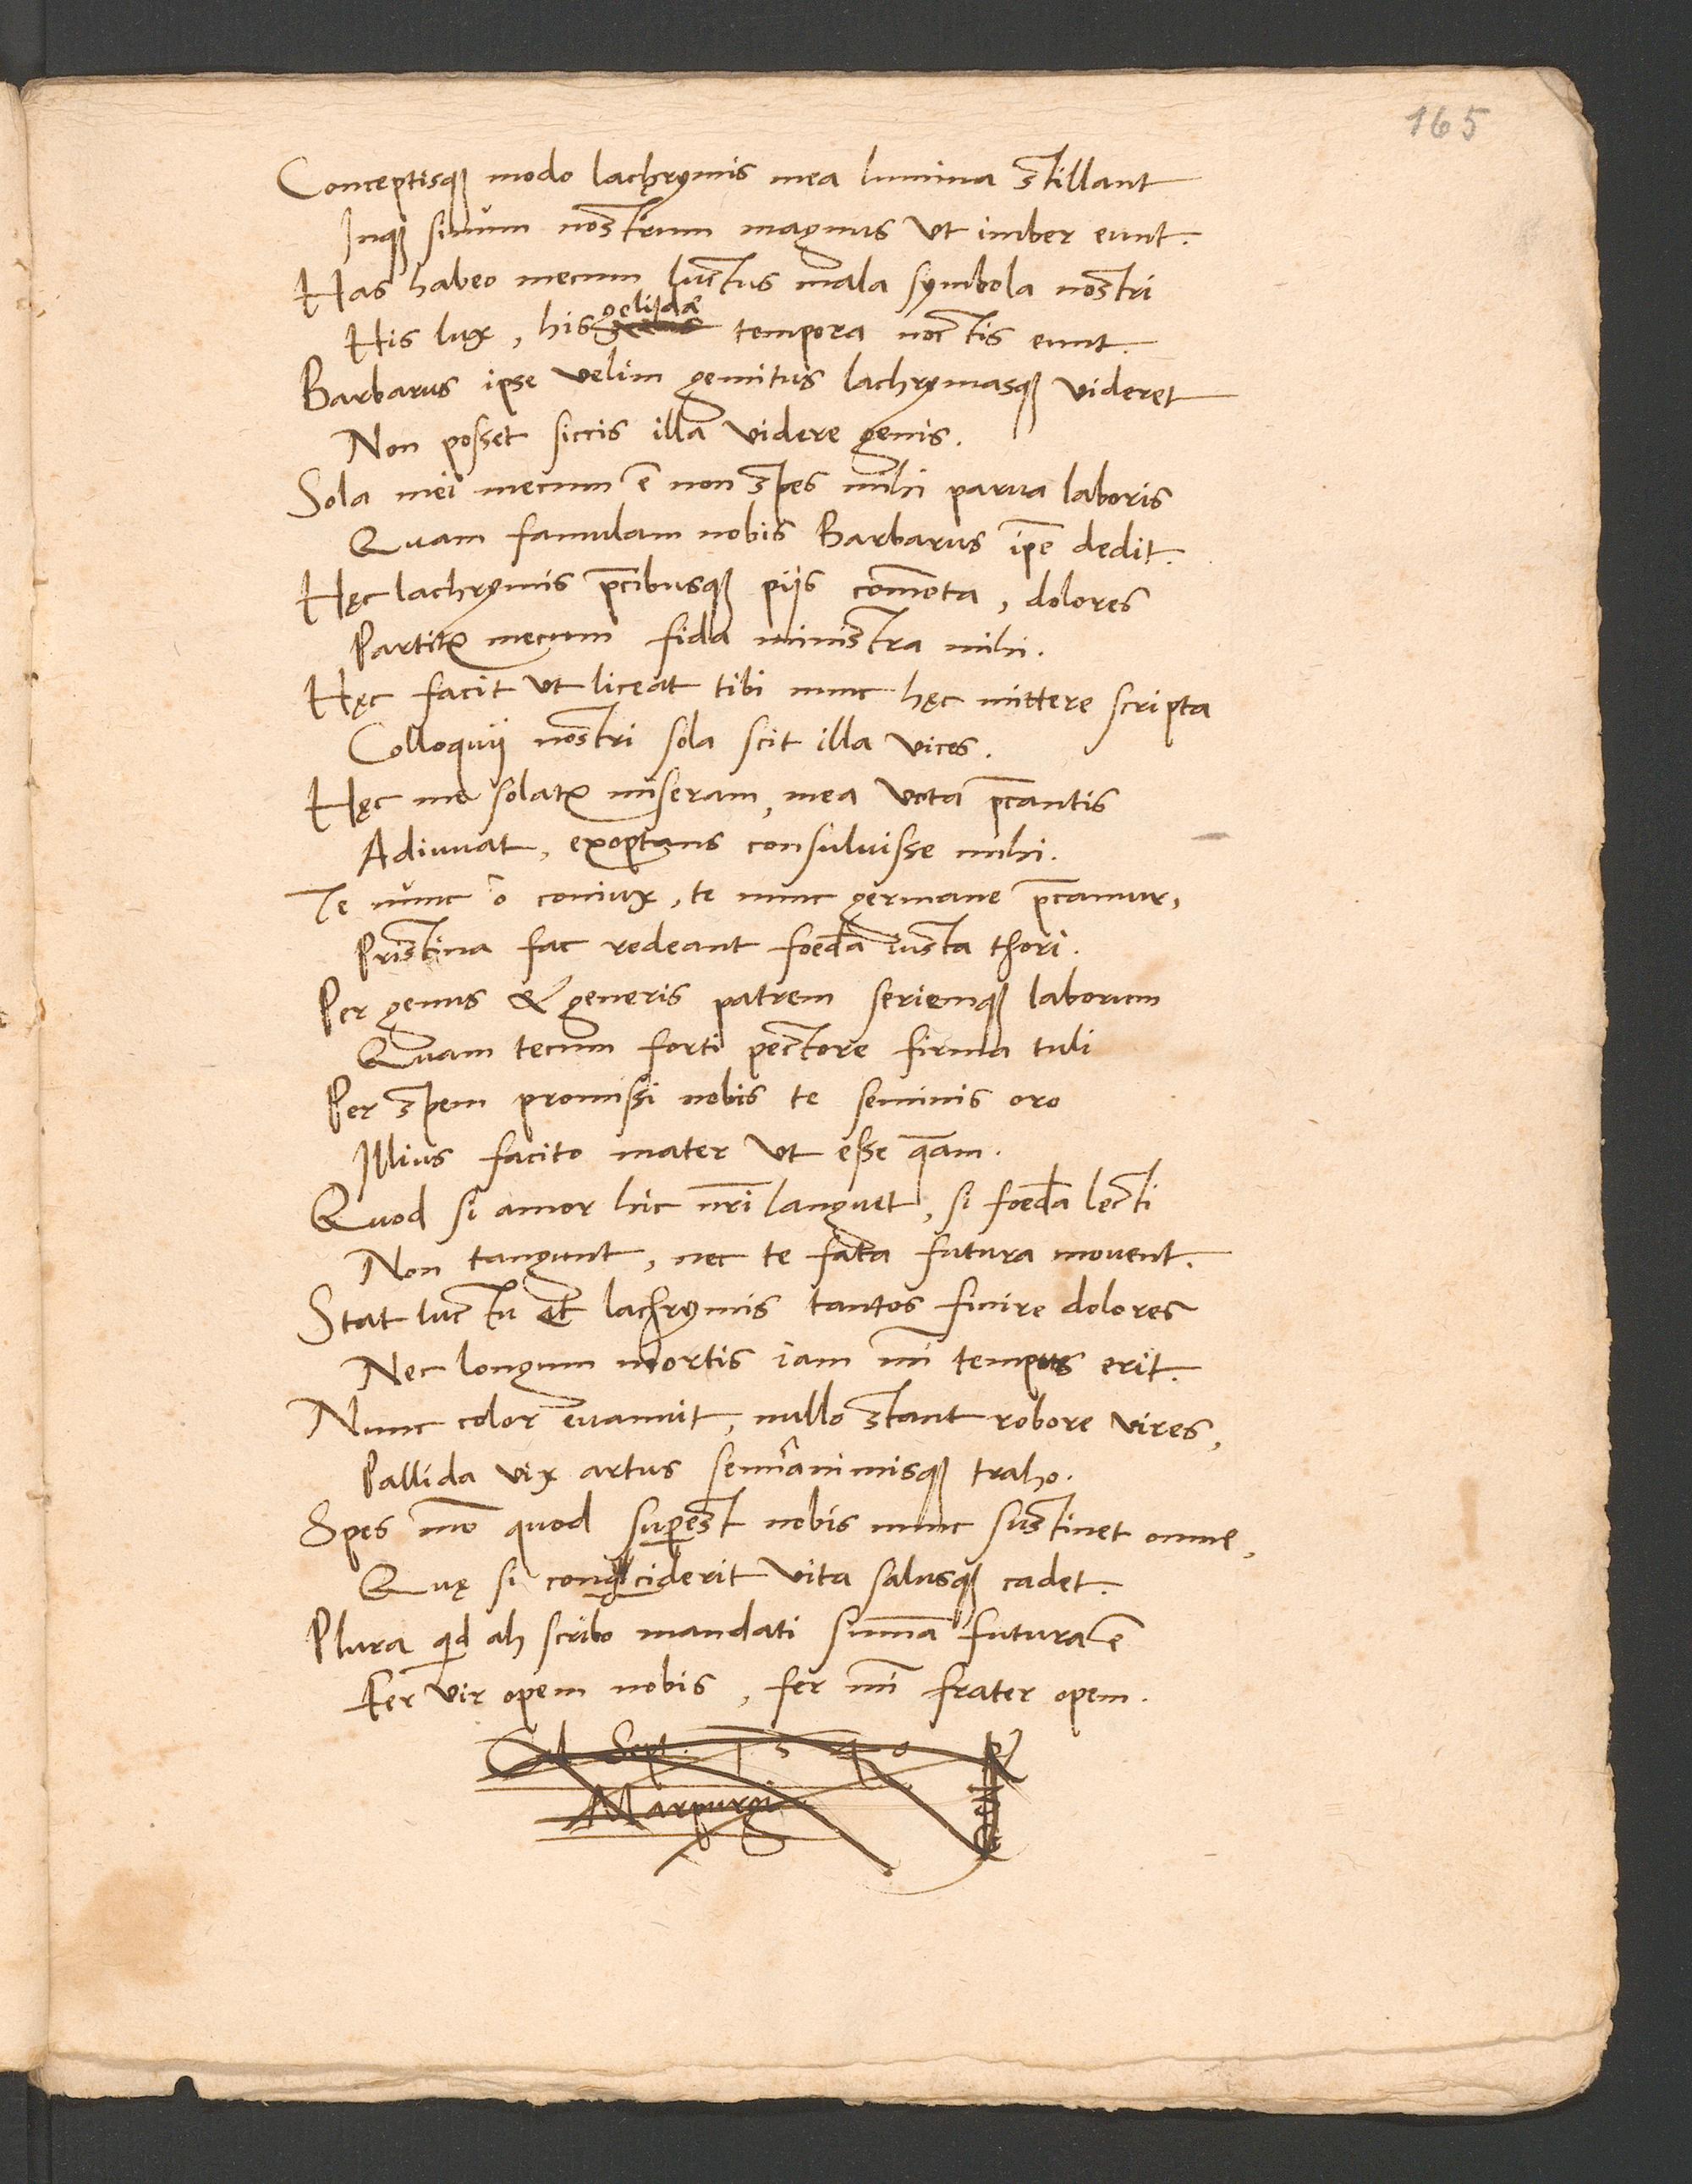 165
Conceptisq3 modo lachrymis mea lumina stillant
Inq3 sinum nostrum magnus ut imber eunt.
Has habeo mecum luctus mala symbola nostri
His lux, his gelidae tempora noctis eunt.
Barbarus ipse velim gemitus lachrymasq3 videret
Non posset siccis illa videre genis.
Sola mei mecum ē non spes mihi parva laboris
Quam famulam nobis Barbarus ip̄e dedit.
Hęc lachrymis p̄cibusq3 pijs com̄ota, dolores
Partitr mecum fida ministra mihi.
Hęc facit ut liceat tibi nunc hęc mittere scripta
Colloquij nostri sola scit illa vices.
Hęc me solatr miseram, mea vota p̄cantis
Adiuvat, exoptans consuluisse mihi.
Te nunc ô coniux, te nunc germane p̄camur,
Pristina fac redeant foedā iusta thori.
Per genus & generis patrem seriemq3 laborum
Quam tecum forti pectore firma tuli
Per spem promissi nobis te seminis oro
Illius facito mater ut esse q̄am.
Quod si amor hic nr̄i languet, si foedā lecti
Non tangunt, nec te fata futura movent.
Stat luctu et lachrymis tantos finire dolores
Nec longum mortis iam mī tempus erit.
Nunc color evanuit, nullo stant robore vires,
Pallida vix artus semianimisq3 traho.
Spes mō quod superest nobis nunc sustinet omne,
Quę si conciderit vita salusq3 cadet.
Plura qid ah scribo mandati sum̄a futura ē
Fer vir opem nobis, fer mī frater opem.
Cal Sept. 1540
Marpurgi